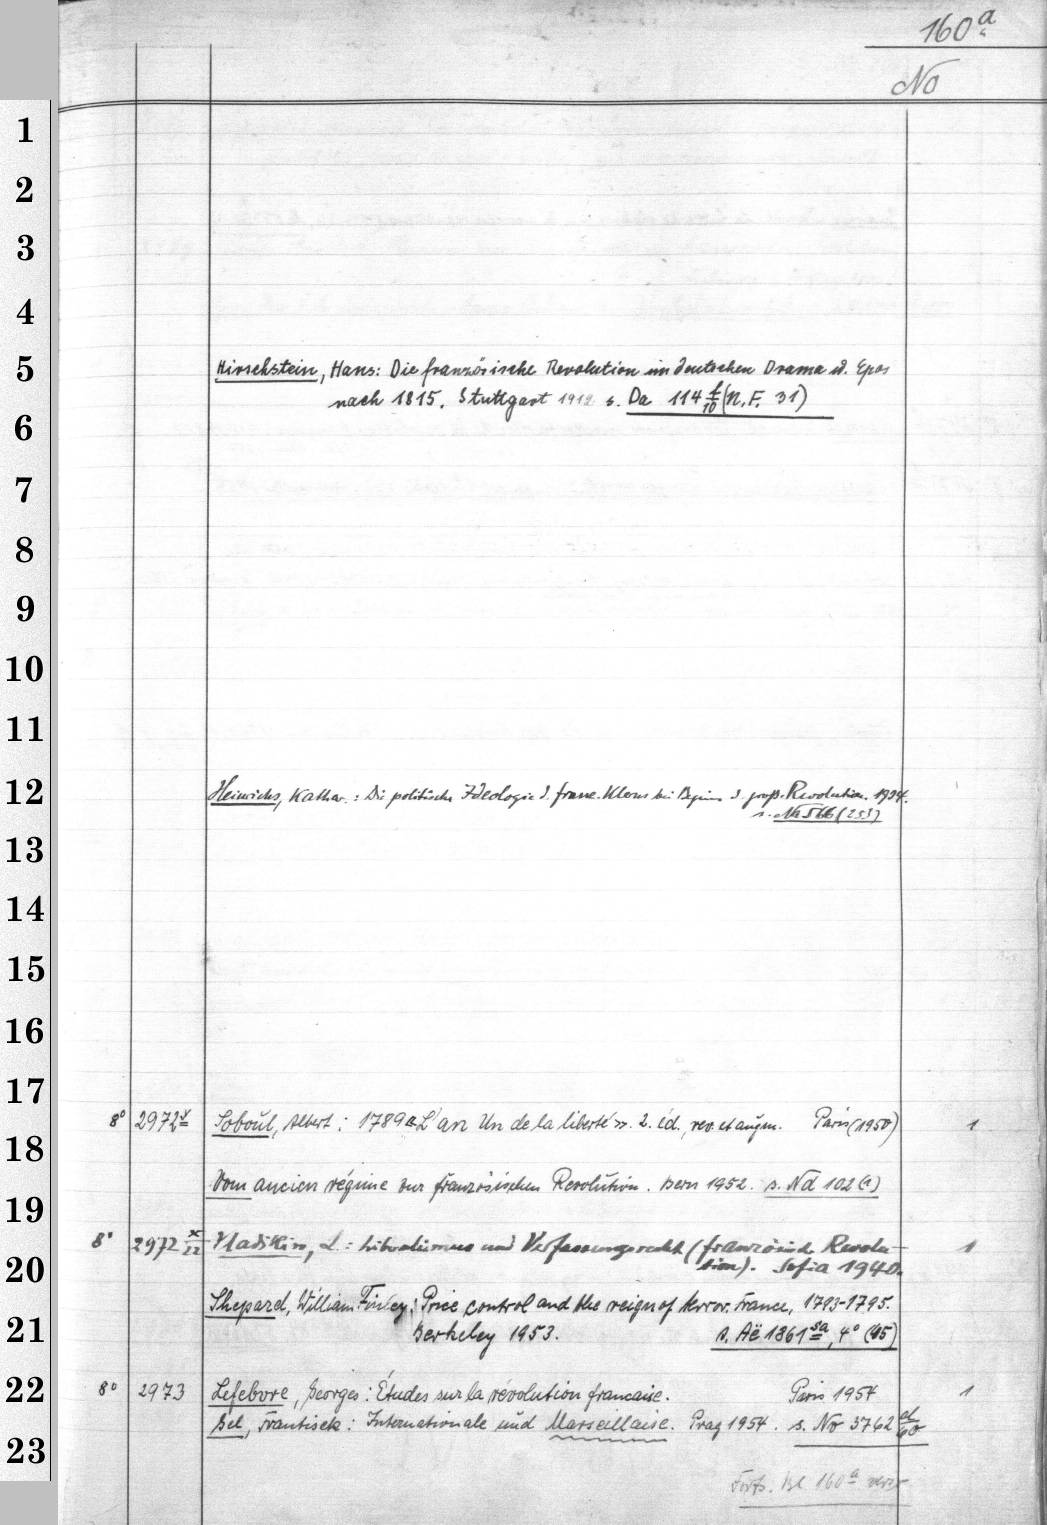 160 a
No
1
2
3
4
5
Hirschstein, Hans: Die französische Revolution im deutschen Drama u. Epos
nach 1815. Stuttgart 1912 s. Da 114 f/10 (N.F. 31)
6
7
8
9
10
11
12
Heinrichs, Kathar.: Die politische Ideologie d. franz. Klerus bei Beginn d. groß. Revolution. 1934.
s. Na 566 (253)
13
14
15
16
17
8° 2972 v Soboul, Albert: 1789 "L'an Un de la liberté". 2. éd., rev. et augm. Paris (1950) 1
18
Vom ancien régime zur französischen Revolution. Bern 1952. s. Nd 102 (1)
19
8° 2972 x/22 Vladikin, L.: Liberalismus und Verfassungsrecht (französische Revolu-
tion). Sofia 1940. 1
20
Shepard, William Finley: Price control and the reign of terror. France, 1793-1795.
21
Berkeley 1953. s. Aë 1861 sa, 4° (45)
22
8° 2973 Lefebvre, Georges: Études sur la révolution francaise. Paris 1954 1
Bel, Frantisek: Internationale und Marseillaise. Prag 1954. s. No 3762
23
Forts. Bl 160 a verso